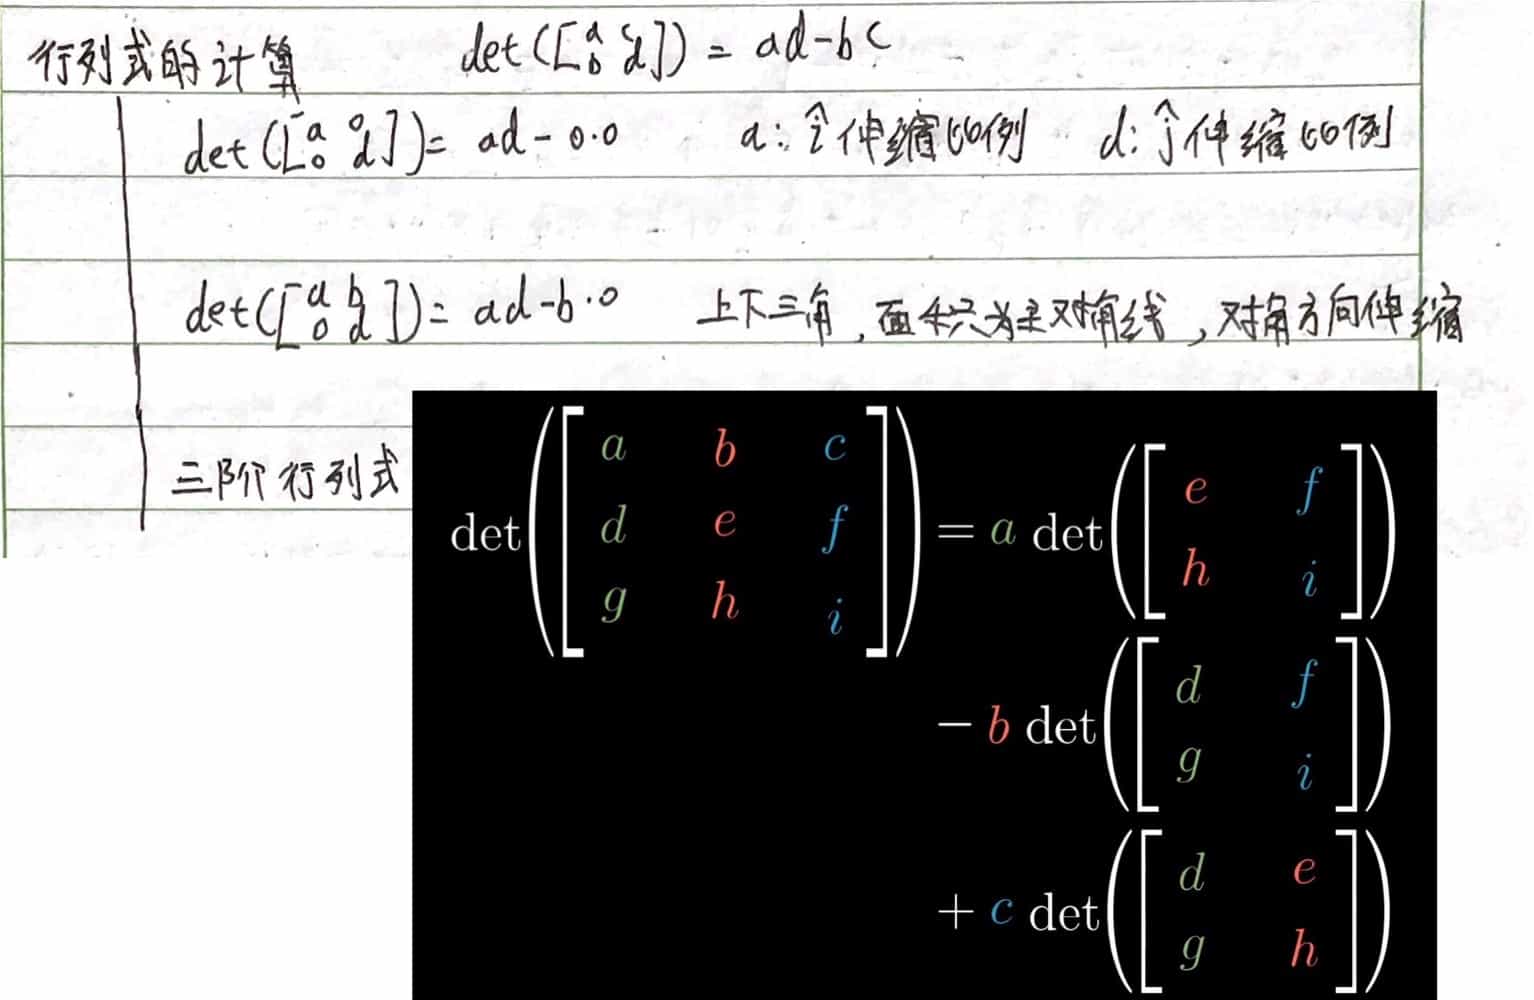 行列式的计算 det([a c b d]) = ad-bc
det([a 0 0 d]) = ad-0·0 a: î伸缩比例 d: ĵ伸缩比例
det([a b 0 d]) = ad-b·0 上下三角,面积只为主对角线,对角方向伸缩
三阶行列式
det([a b c
d e f
g h i]) = a det([e f
h i])
- b det([d f
g i])
+ c det([d e
g h])